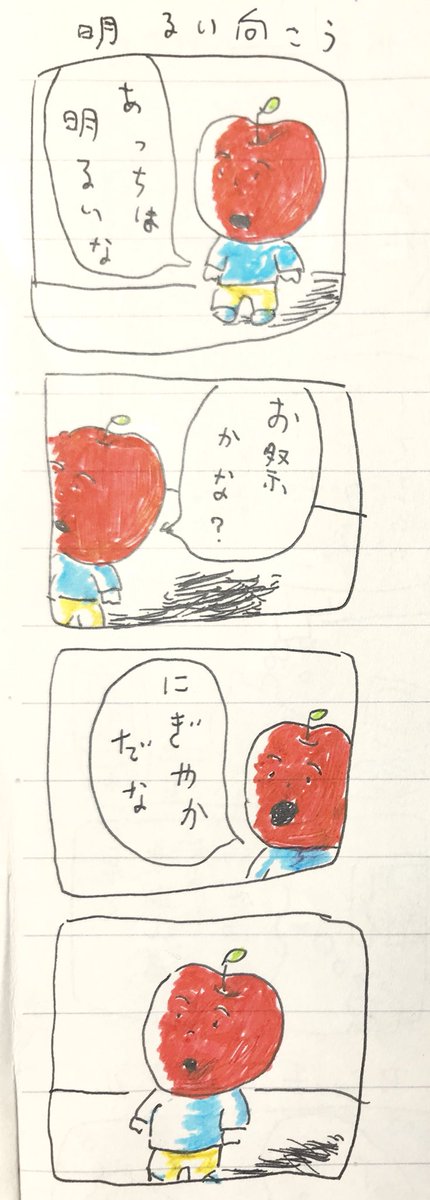 明るい向こう
あっちは
明るいな
お祭
かな?
にぎやか
だな